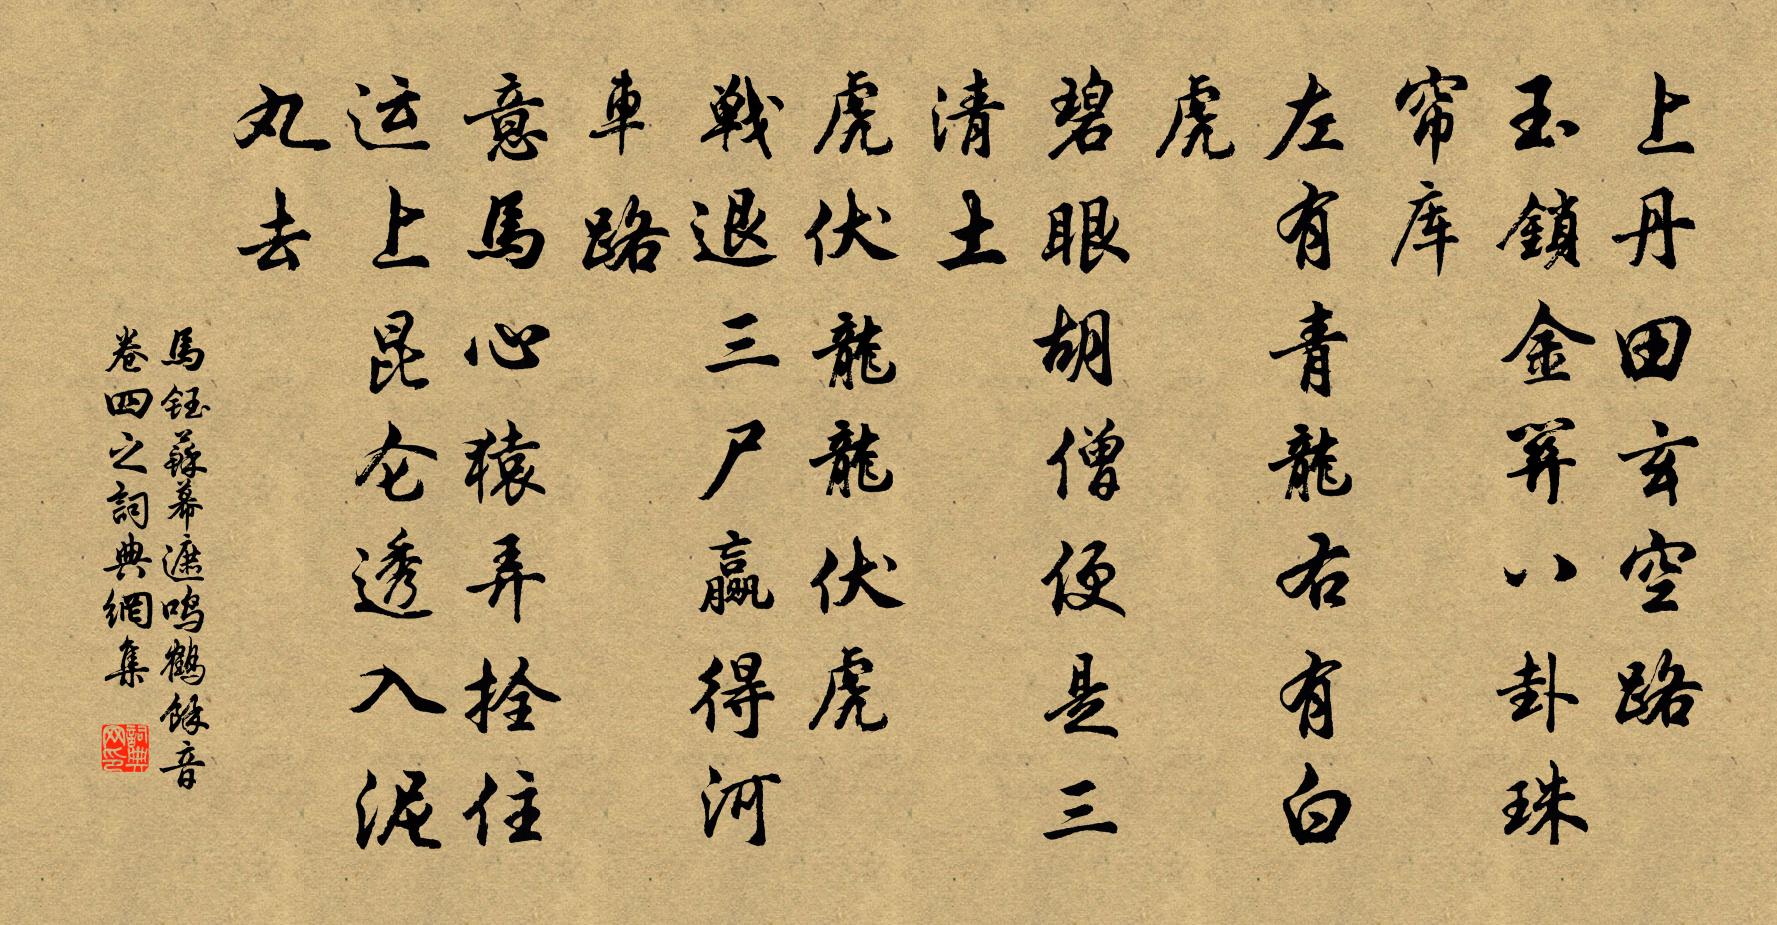 上丹田玄空路
玉鎖金箅八卦珠
帘库
左有青龍右有白
虎
碧眼胡僧便是三
清士
虎伏龍龍伏虎
戦退三尸贏得河
車路
意馬心猿弄拴住
运上昆仑透入泥
丸去
馬鈺蘇幕遮鸣鶴餘音
卷四之詞典網集
詞典网印